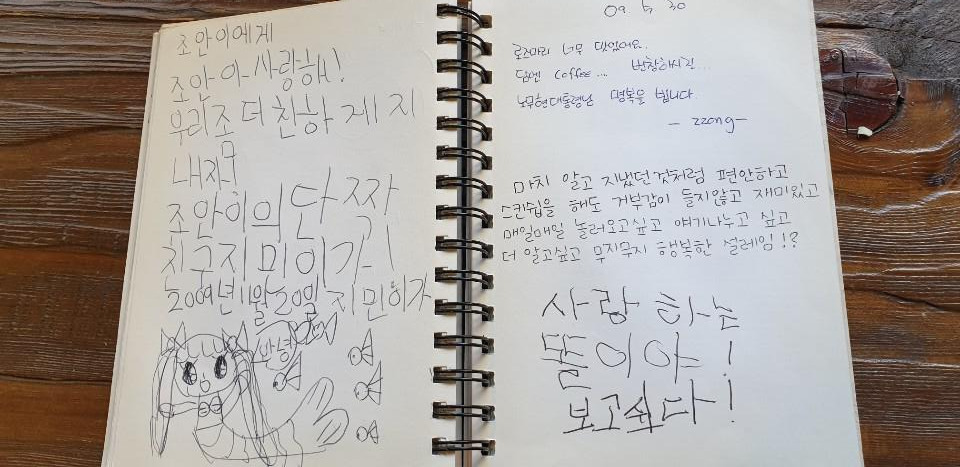 초안이에게
조안아 사랑해!
우리 조 더 친하게 지
내자
조안이의 단짝
친구 지민이가!
2009년 11월 20일 지민이가
안녕
09. 5. 30
로즈마리 너무 맛있어요.
담엔 coffee... 번창하시길...
노무현대통령님 명복을 빕니다
- zzong -
마치 알고 지냈던것처럼 편안하고
스킨쉽을 해도 거부감이 들지않고 재미있고
매일매일 놀러오고싶고 얘기나누고 싶고
더 알고싶고 무지무지 행복한 설레임!?
사랑 하는
똘이야!
보고싶다!